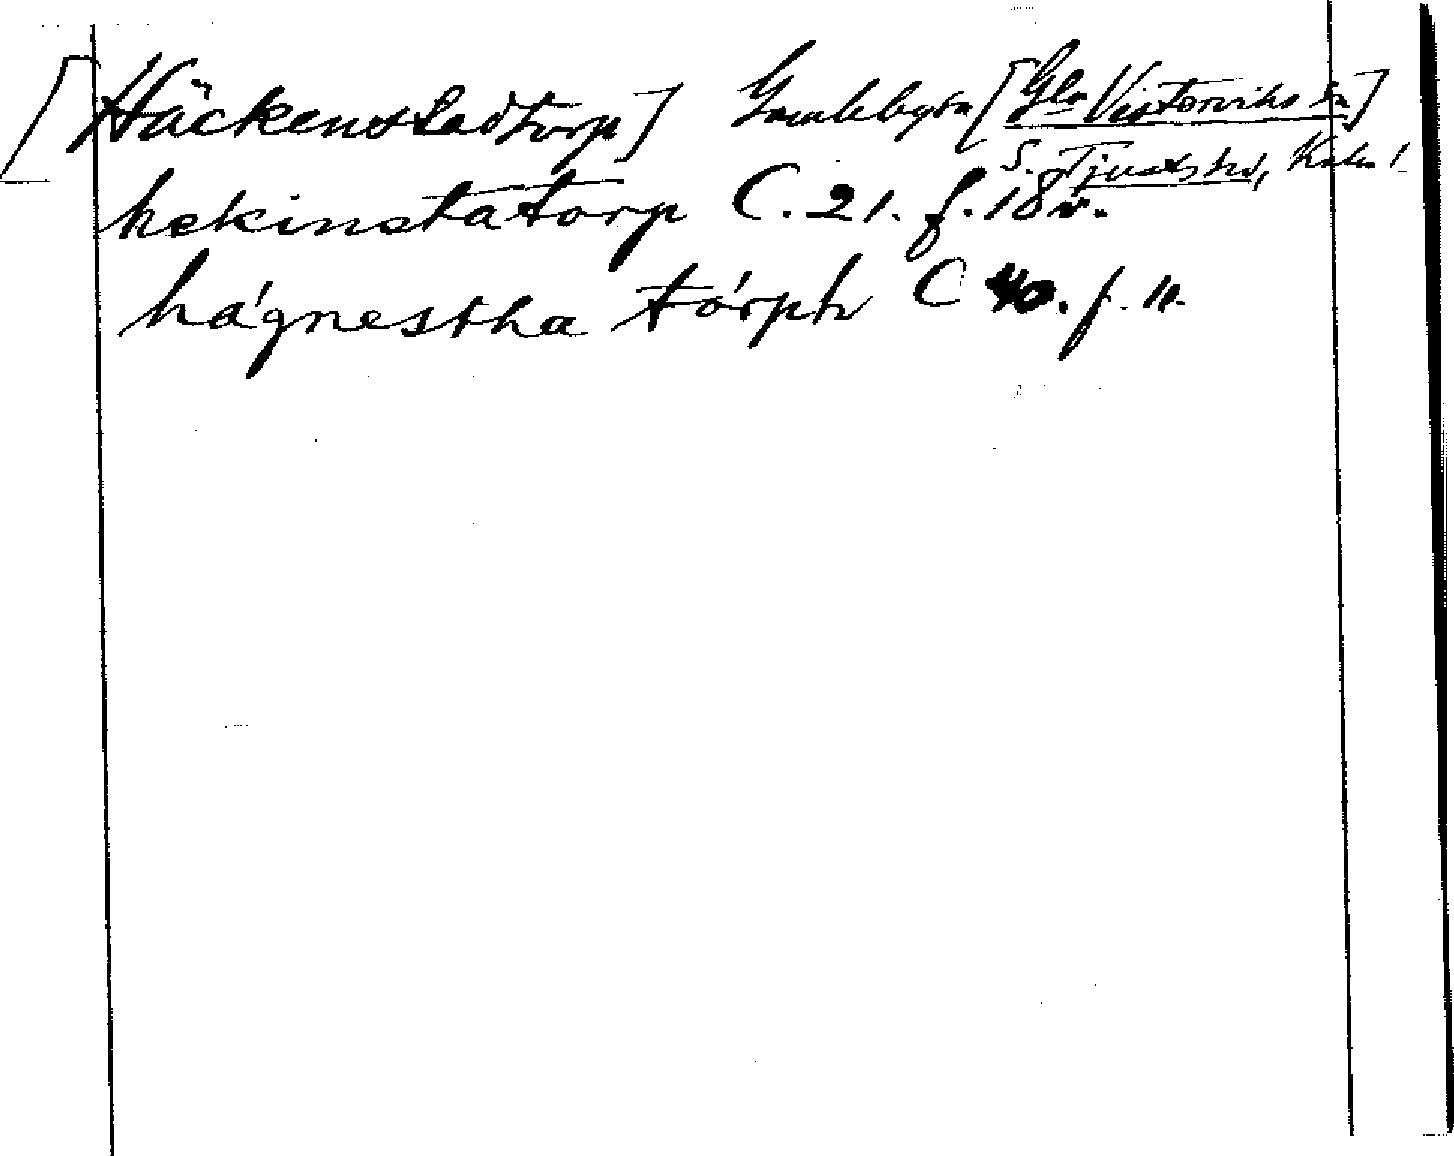 [Häckenstadtorp] Gamleby sn [Gla Västerviks sn]
S. Tjusts hd, Kalm l
hekinstatorp C. 21. f. 18 v.
hágnestha tórph C 40. f. 11.